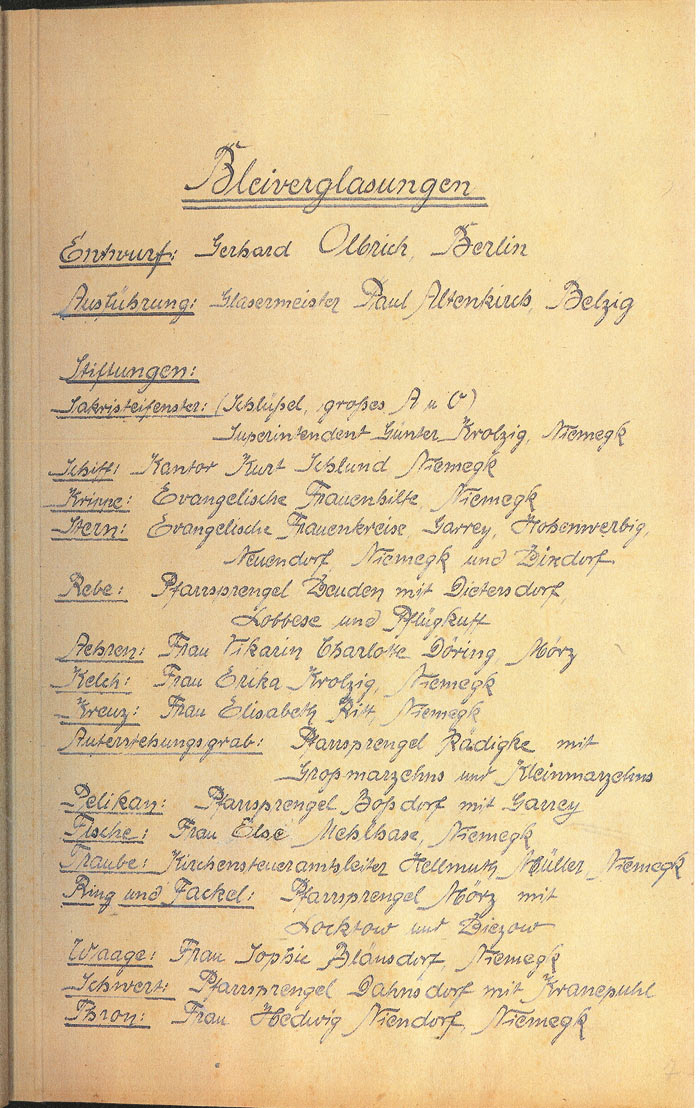 Bleiverglasungen
Entwurf: Gerhard Olbrich, Berlin
Ausführung: Glasermeister Paul Altenkirch, Belzig
Stiftungen:
Sakristeifenster: (Schlüßel, großes A u O)
Superintendent Günter Krolzig, Niemegk
Schiff: Kantor Kurt Schlund Niemegk
Krippe: Evangelische Frauenhilfe, Niemegk
Stern: Evangelische Frauenkreise Garrey, Hohenwerbig,
Neuendorf, Niemegk und Zixdorf
Rebe: Pfarrsprengel Zeuden mit Dietersdorf,
Lobbese und Pflügkuff
Aehren: Frau Vikarin Charlotte Döring, Mörz
Kelch: Frau Erika Krolzig, Niemegk
Kreuz: Frau Elisabeth Niemegk
Auferstehungsgrab: Pfarrsprengel Rädigke mit
Großmarzehns und Kleinmarzehns
Pelikan: Pfarrsprengel Boßdorf mit Garrey
Fische: Frau Else Mehlhase, Niemegk
Traube: Kirchensteueramtsleiter Hellmuth Müller, Niemegk
Ring und Fackel: Pfarrsprengel Mörz mit
Locktow und Ziezow
Waage: Frau Sophie Blänsdorf, Niemegk
Schwert: Pfarrsprengel Dahnsdorf mit Kranepuhl
Thron: Frau Hedwig Niendorf, Niemegk